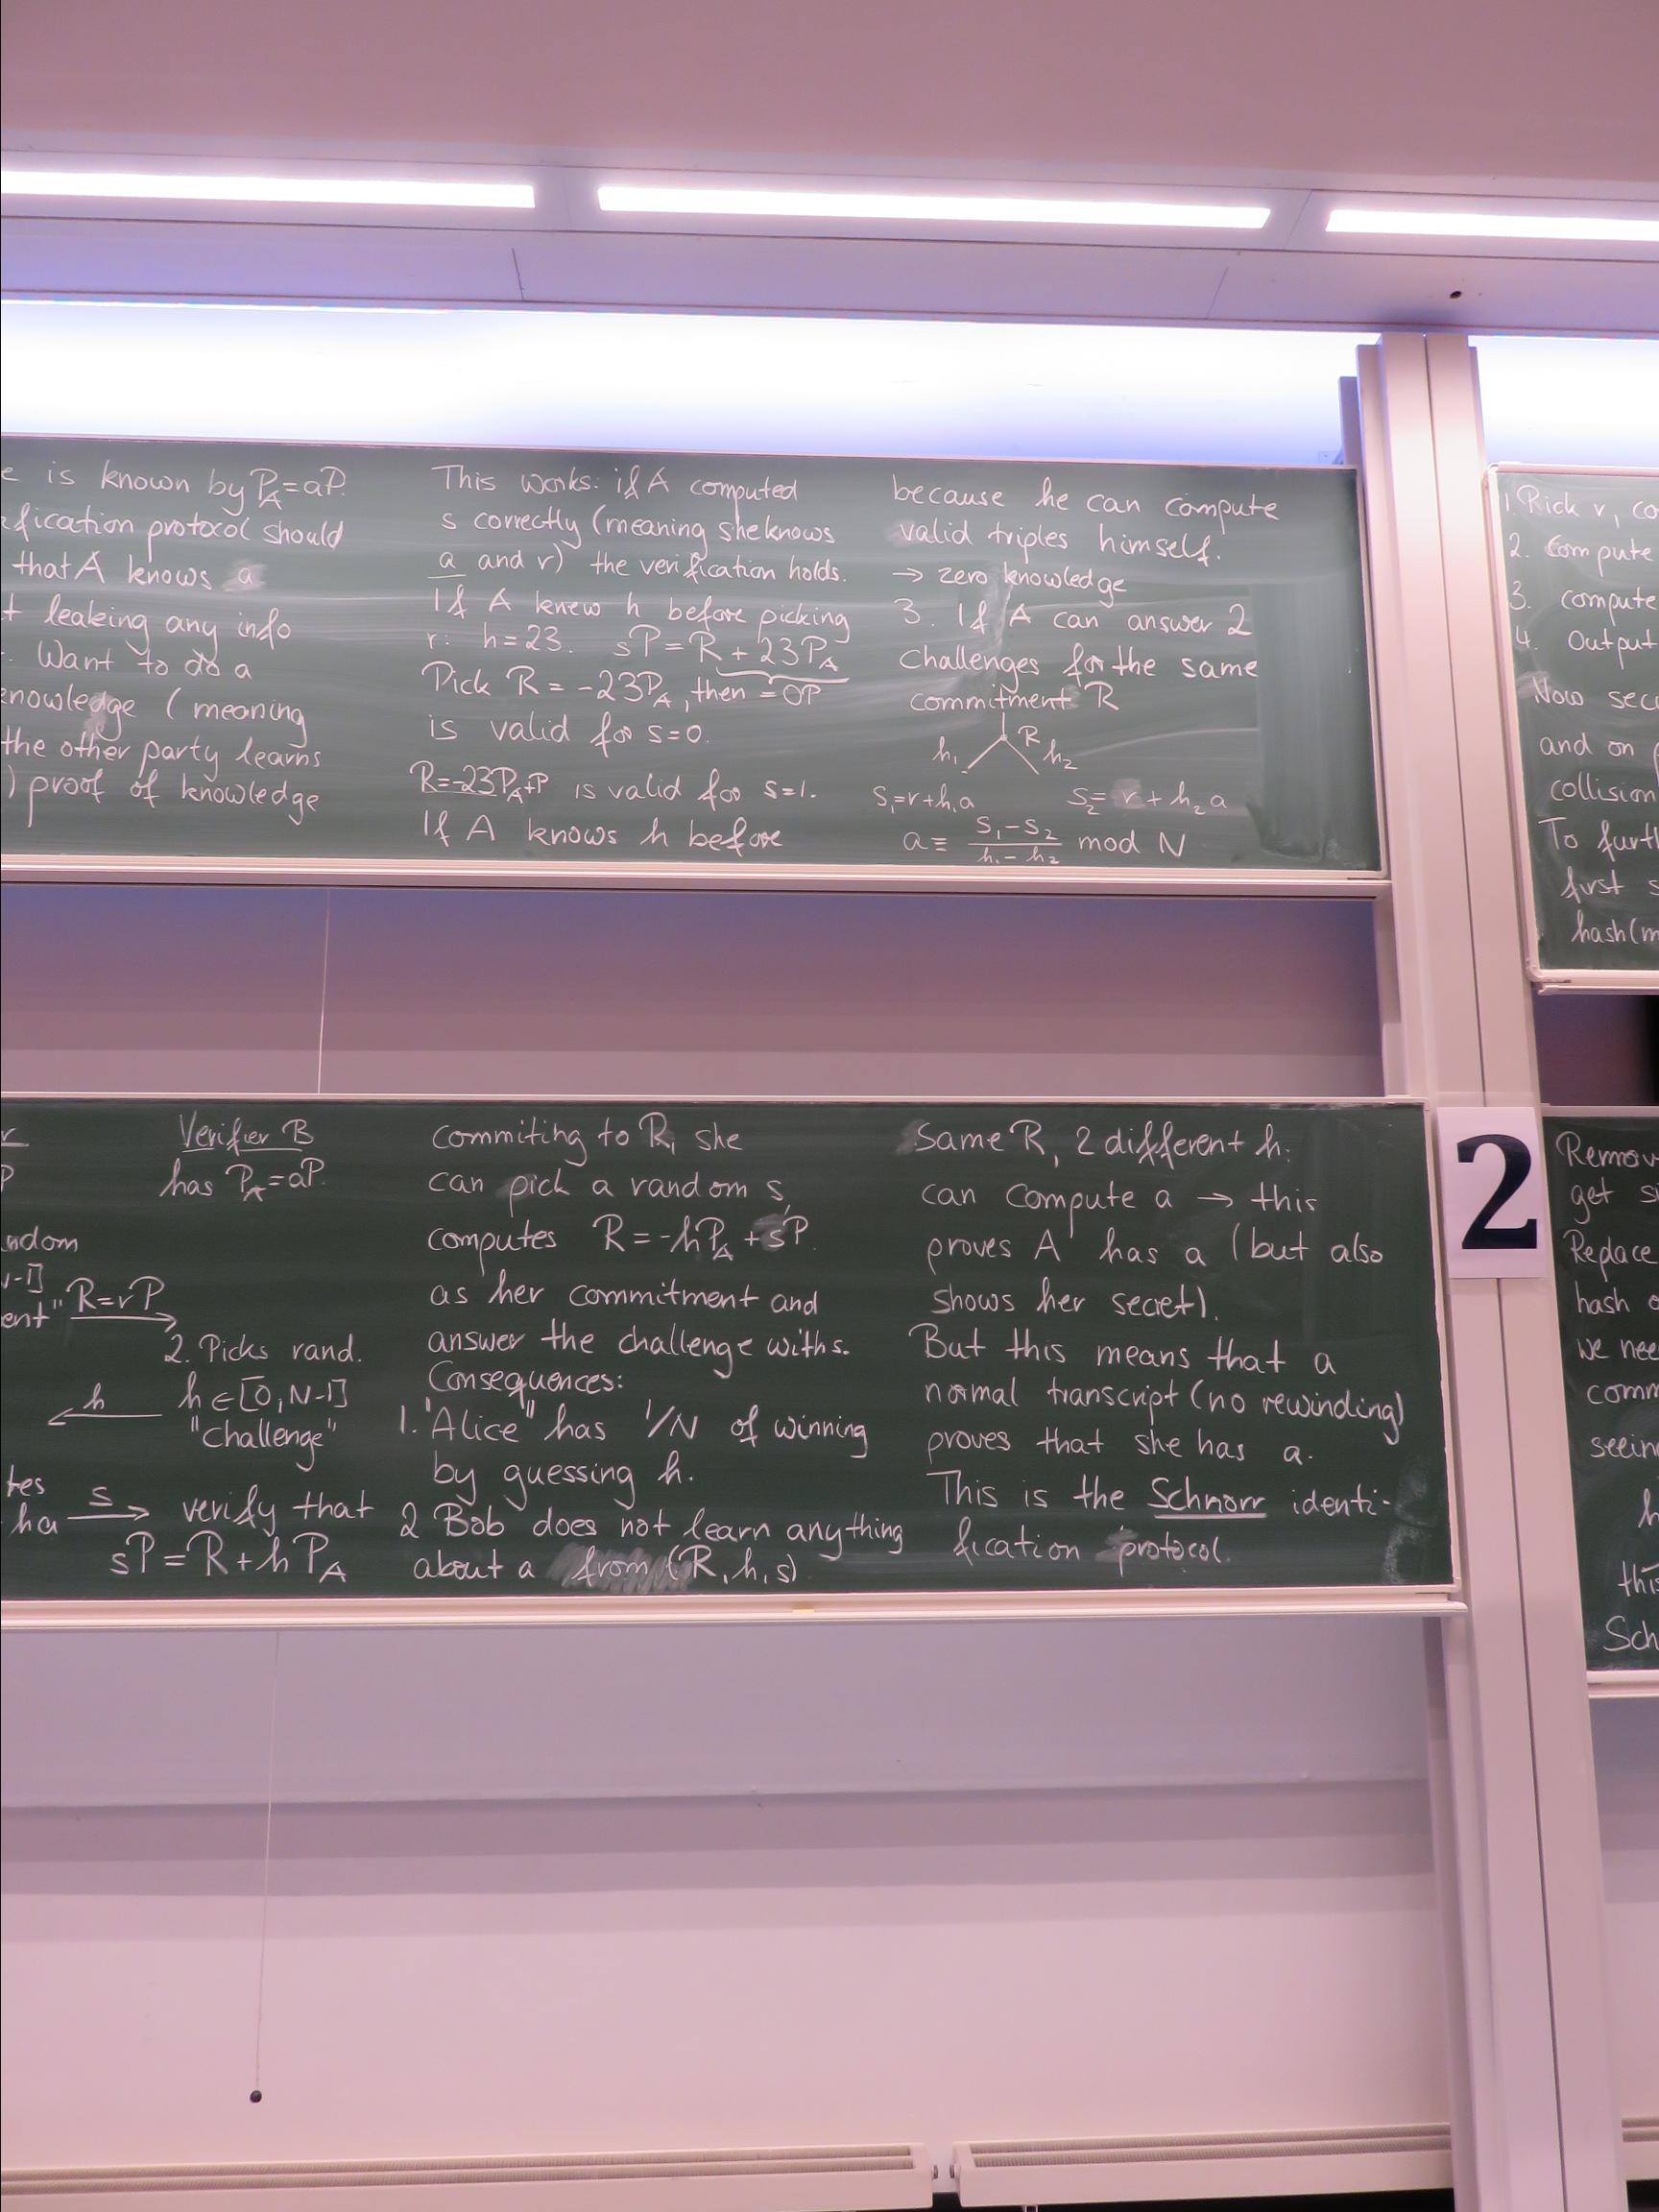 e is known by P_A=aP.
fication protocol should
that A knows a
t leaking any info
. Want to do a
knowledge (meaning
the other party learns
) proof of knowledge
Verifier B
has P_A=aP.
ndom
N-1]
ent" R=rP
2. Picks rand.
h h∈[0,N-1]
"challenge"
tes
ha s verify that
sP=R+hP_A
This works: if A computed
s correctly (meaning she knows
a and r) the verification holds.
If A knew h before picking
r: h=23. sP=R+23P_A
Pick R=-23P_A, then =0P
is valid for s=0.
R=-23P_A+P is valid for s=1.
If A knows h before
commiting to R, she
can pick a random s,
computes R=-hP_A+sP.
as her commitment and
answer the challenge with s.
Consequences:
1. "Alice" has 1/N of winning
by guessing h.
2 Bob does not learn anything
about a from (R,h,s)
because he can compute
valid triples himself.
→ zero knowledge
3. If A can answer 2
challenges for the same
commitment R
h₁ R h₂
s₁=r+h₁a s₂=r+h₂a
a≡ (s₁-s₂)/(h₁-h₂) mod N
Same R, 2 different h:
can compute a → this
proves A has a (but also
shows her secret).
But this means that a
normal transcript (no rewinding)
proves that she has a.
This is the Schnorr identi-
fication protocol.
2
1. Pick r, co
2. Compute
3. compute
4. Output
Now sec
and on
collision
To furth
first s
hash(m
Remov
get si
Replace
hash o
we nee
comm
seein
h
this
Sch